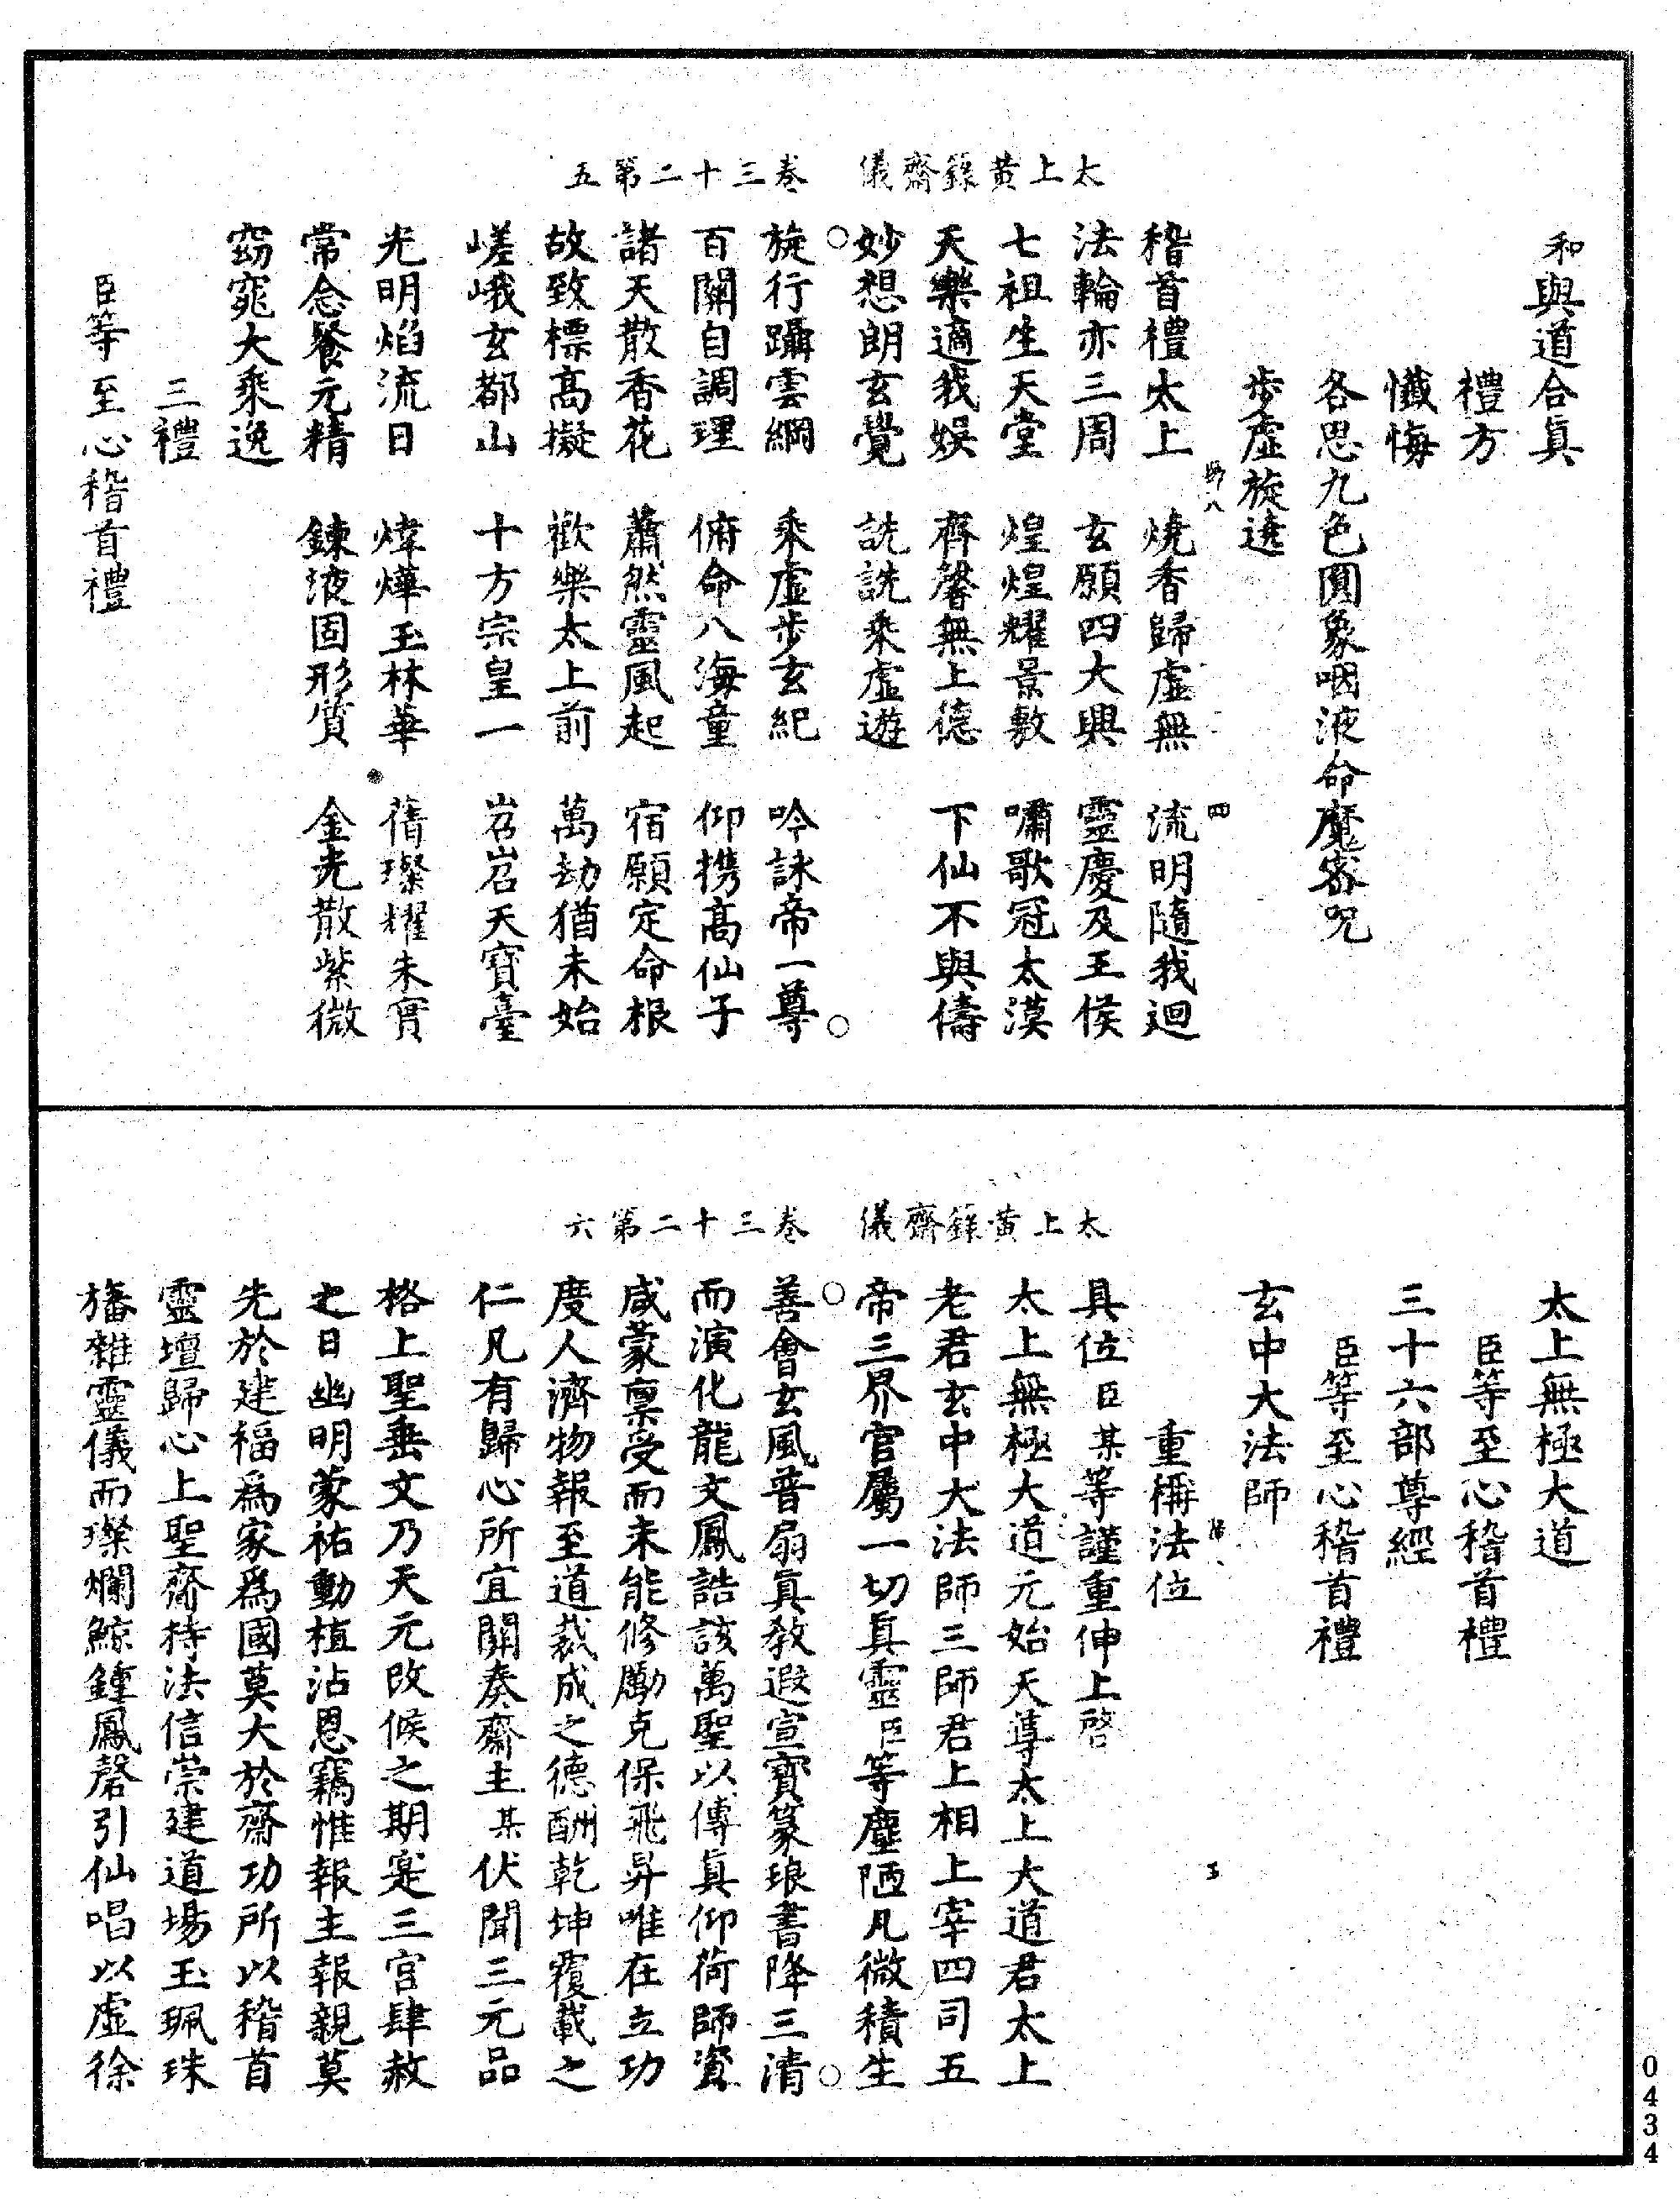 太上黃籙齋儀　卷三十二第五
和與道合眞
禮方
懺悔
各思九色圓象咽液命魔密呪
步虛旋遶
稽首禮太上　燒香歸虛無　流明隨我迴
法輪亦三周　玄願四大興　靈慶及王侯
七祖生天堂　煌煌耀景敷　嘯歌冠太漠
天樂適我娛　齊馨無上德　下仙不與儔
妙想朗玄覺　詵詵乘虛遊
旋行躡雲綱　乘虛步玄紀　吟詠帝一尊
百關自調理　俯命八海童　仰攜高仙子
諸天散香花　蕭然靈風起　宿願定命根
故致標高擬　歡樂太上前　萬劫猶未始
嵯峨玄都山　十方宗皇一　岧岧天寶臺
光明焰流日　煒燁玉林華　蒨璨耀朱實
常念餐元精　鍊液固形質　金光散紫微
窈窕大乘逸
三禮
臣等至心稽首禮
太上黃籙齋儀　卷三十二第六
太上無極大道
臣等至心稽首禮
三十六部尊經
臣等至心稽首禮
玄中大法師
重稱法位
具位臣某等謹重伸上啓
太上無極大道元始天尊太上大道君太上
老君玄中大法師三師君上相上宰四司五
帝三界官屬一切眞靈臣等塵陋凡微積生
善會玄風普扇眞敎遐宣寶篆琅書降三清
而演化龍文鳳誥該萬聖以傳眞仰荷師資
咸蒙稟受而未能修勵克保飛昇唯在立功
度人濟物報至道裁成之德酬乾坤覆載之
仁凡有歸心所宜關奏齋主某伏聞三元品
格上聖垂文乃天元改候之期寔三官肆赦
之日幽明蒙祐動植沾恩竊惟報主報親莫
先於建福爲家爲國莫大於齋功所以稽首
靈壇歸心上聖齋持法信崇建道場玉珮珠
旛雜靈儀而璨爛鯨鍾鳳磬引仙唱以虛徐
0434